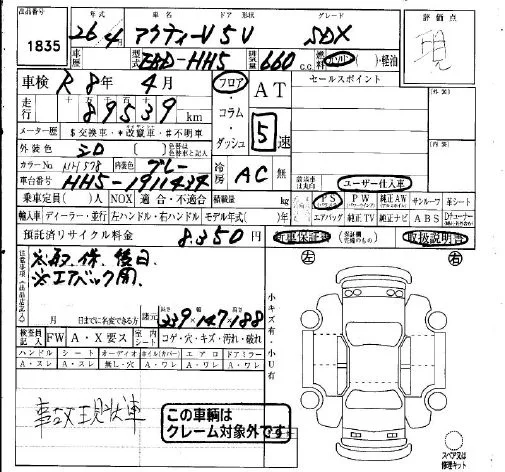 出品番号 年式 車名 ドア 形状 グレード 評価点
1835 26年4月 アクティーV 5V SDX 現
車歴 型式 EBD-HH5 排気量 660 c.c. 燃料 ガソリン ( )・軽油
車検 R8年4月 フロア AT セールスポイント
走行 89539 km ・コラム・
メーター歴 $交換車・*改竄車・#不明車 ダッシュ 5速
外装色 シロ
カラーNo. NH578 内装色 グレー 冷房 AC 無
車台番号 HH5-1911434 ユーザー仕入車
乗車定員( )人 NOX 適合・不適合 積載量 kg PS PW 純正AW サンルーフ 革シート
輸入車 ディーラー・並行 左ハンドル・右ハンドル モデル年式( )年 エアバッグ 純正TV 純正ナビ ABS
預託済リサイクル料金 8.350円 新車保証書 取扱説明書
注意事項 ※取.保.後日 左 右
※エアバック開
月 日までに名変できる方 諸元 長さ 339 幅 147 高さ 188
小キズ有・小U有
検査員記入 FW A・X要ス 室内シート コゲ・穴・キズ・汚れ・破れ
ハンドル シート オーディオ ホイル(カバー) エアロ ドアミラー
A・スレ A・スレ 無し・穴 A・ワレ A・ワレ A・ワレ
事故現状車
この車輌は
クレーム対象外です。
スペアスは
修理キット